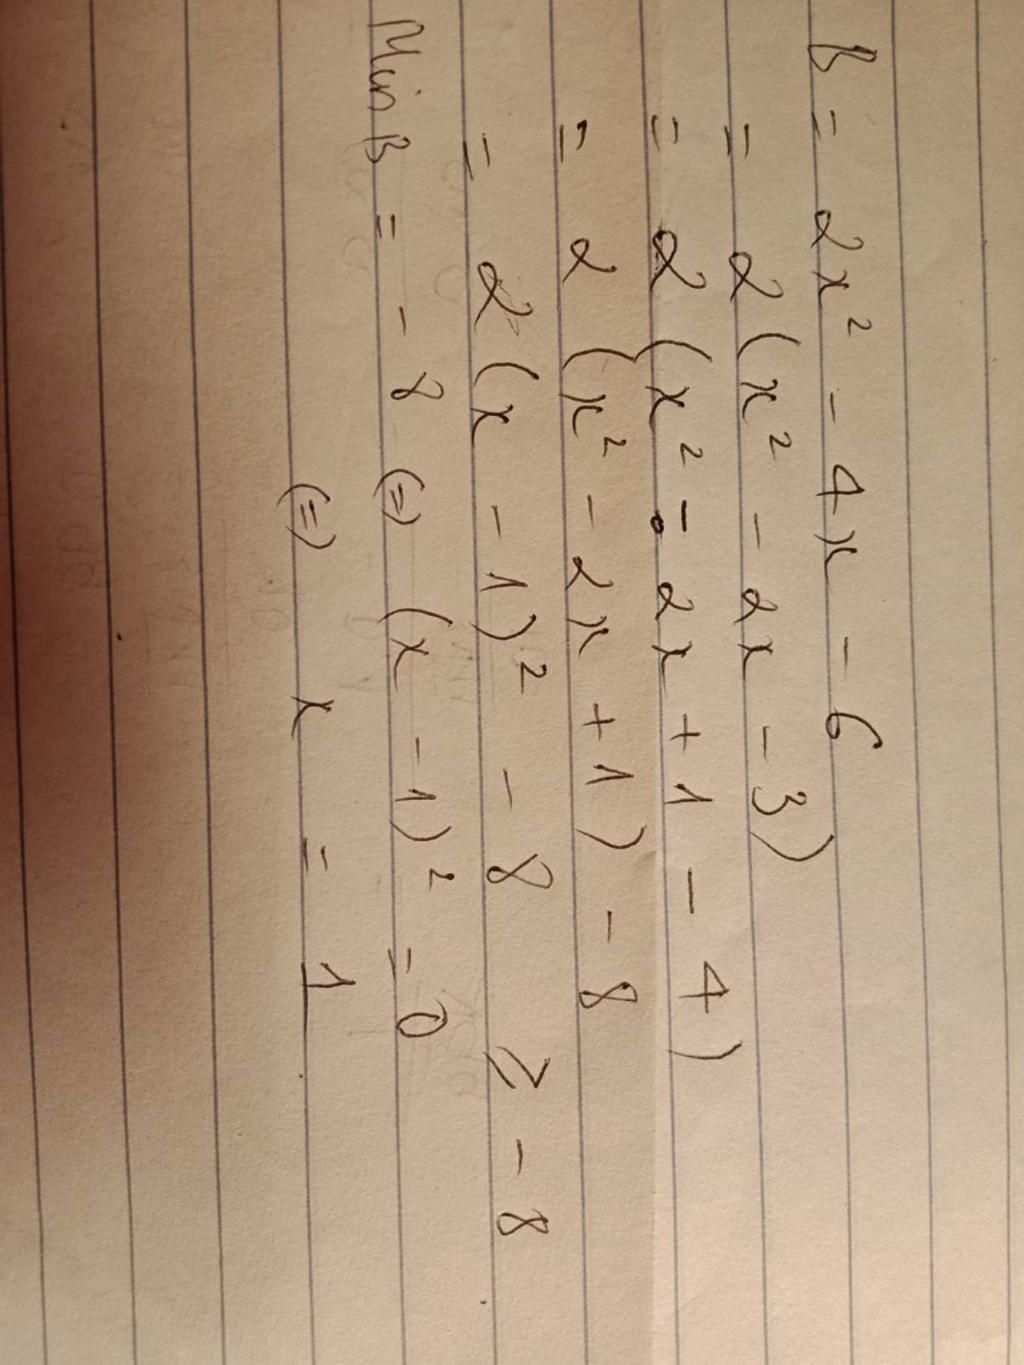 B = 2x² - 4x - 6
= 2(x² - 2x - 3)
= 2(x² - 2x + 1 - 4)
= 2(x² - 2x + 1) - 8
= 2(x - 1)² - 8 ≥ -8
Min B = -8 (=) (x - 1)² = 0
(=) x = 1